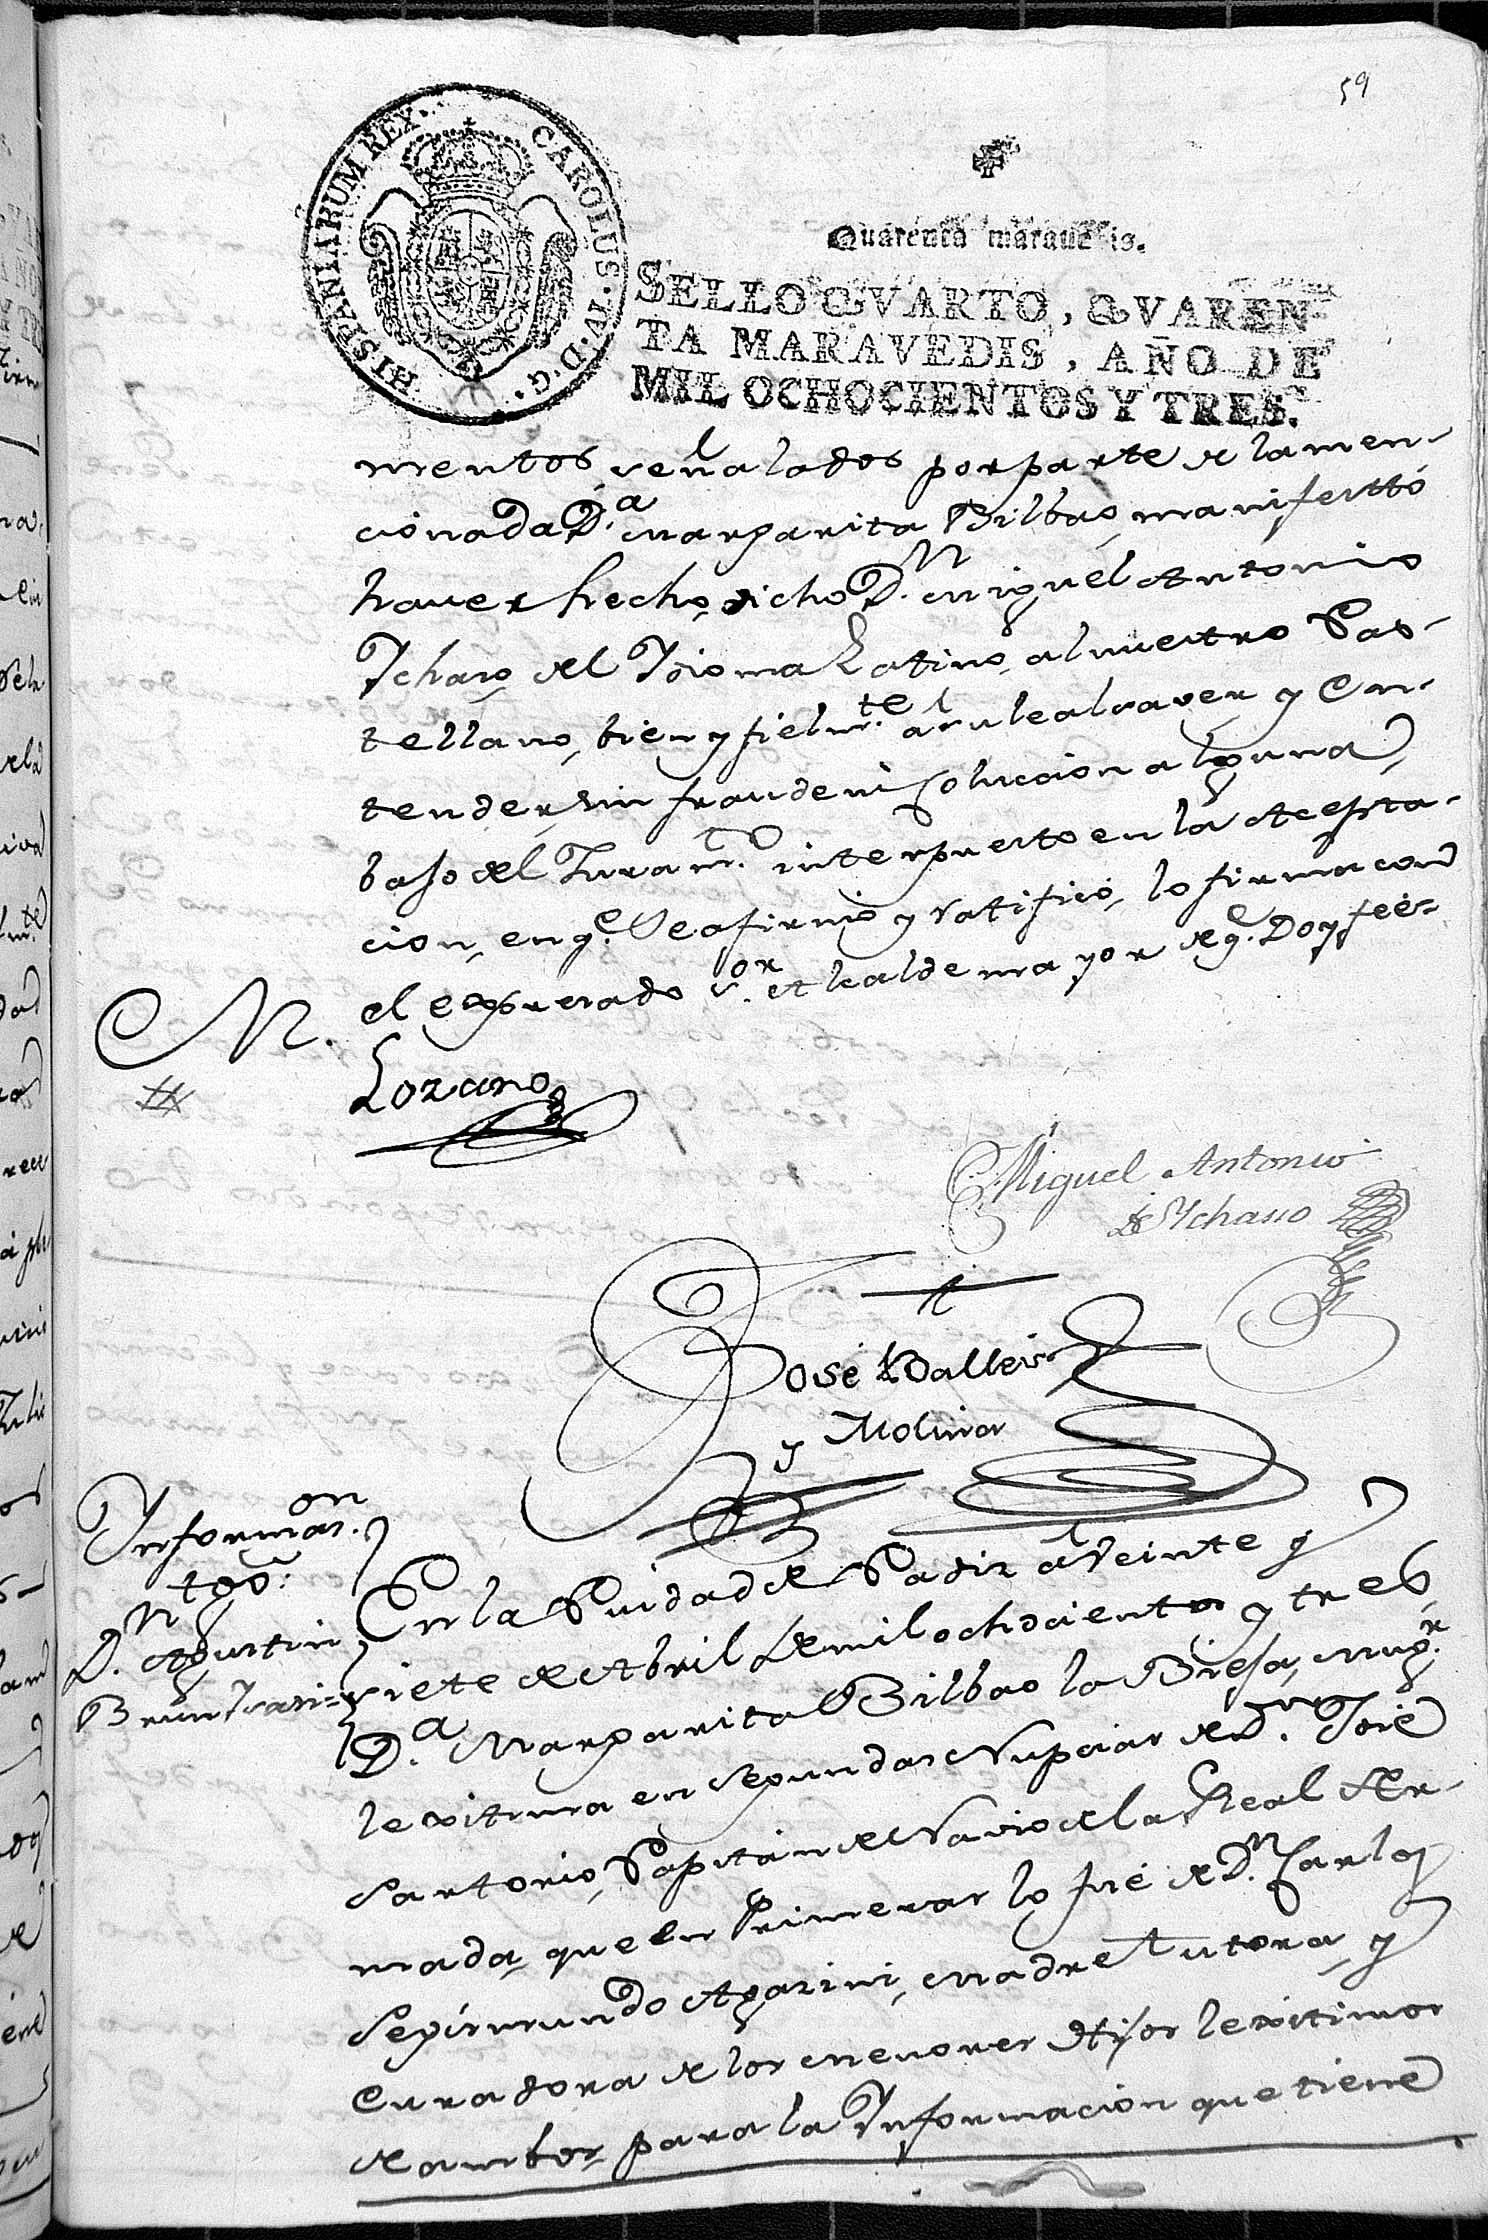 59
HISPANIARUM REX. CAROLUS. IV. D. G.
Quarenta maravedis.
SELLO QVARTO, QVAREN-
TA MARAVEDIS, AÑO DE
MIL OCHOCIENTOS Y TRES.
mentos señalados por parte de la men-
cionada D.ª Margarita Bilbao, manifestó
haver hecho, dicho D.n Miguel Antonio
Ychaso, del Ydioma Latino, al nuestro Cas-
tellano, bien y fielm.te a su leal saver y en-
tender, sin fraude ni colucion alguna,
bajo del Juram.to interpuesto en la Acepta-
cion, en q.e se afirmó y ratificó, lo firma con
el expresado S.or Alcalde mayor de q.e Doy fee=
M.
Lozano
Miguel Antonio
de Ychaso
José Valles
y Molina
Ynformas.on
tgo:
D.n Agustin
Brun
En la Ciudad de Cadiz a veinte y
siete de Abril de mil ochocientos y tres,
D.ª Margarita Bilbao la Vieja, mug.r
lexitima en segundas Nupcias de D.n José
Sartorio, Capitan de Navio de la Real Ar-
mada, que en Primeras lo fué de D.n Carlos
Segismundo Agazini, Madre Tutora, y
Curadora de los menores Hijos lexitimos
de ambos, para la Ynformacion que tiene